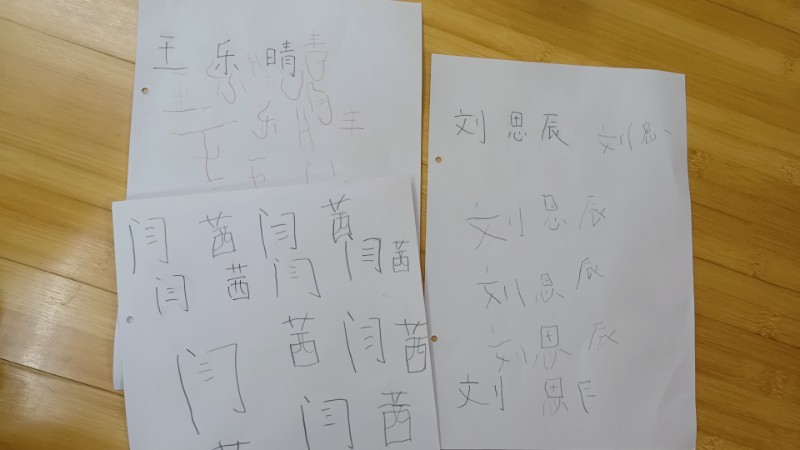 王 乐 晴
王
青
王 乐
王
闫 茜 闫 茜
闫 茜 闫 闫 茜
茜 闫 茜
闫
闫 茜
茜
刘 思 辰 刘 思
刘 思 辰
刘 思 辰
刘 思 辰
刘 思